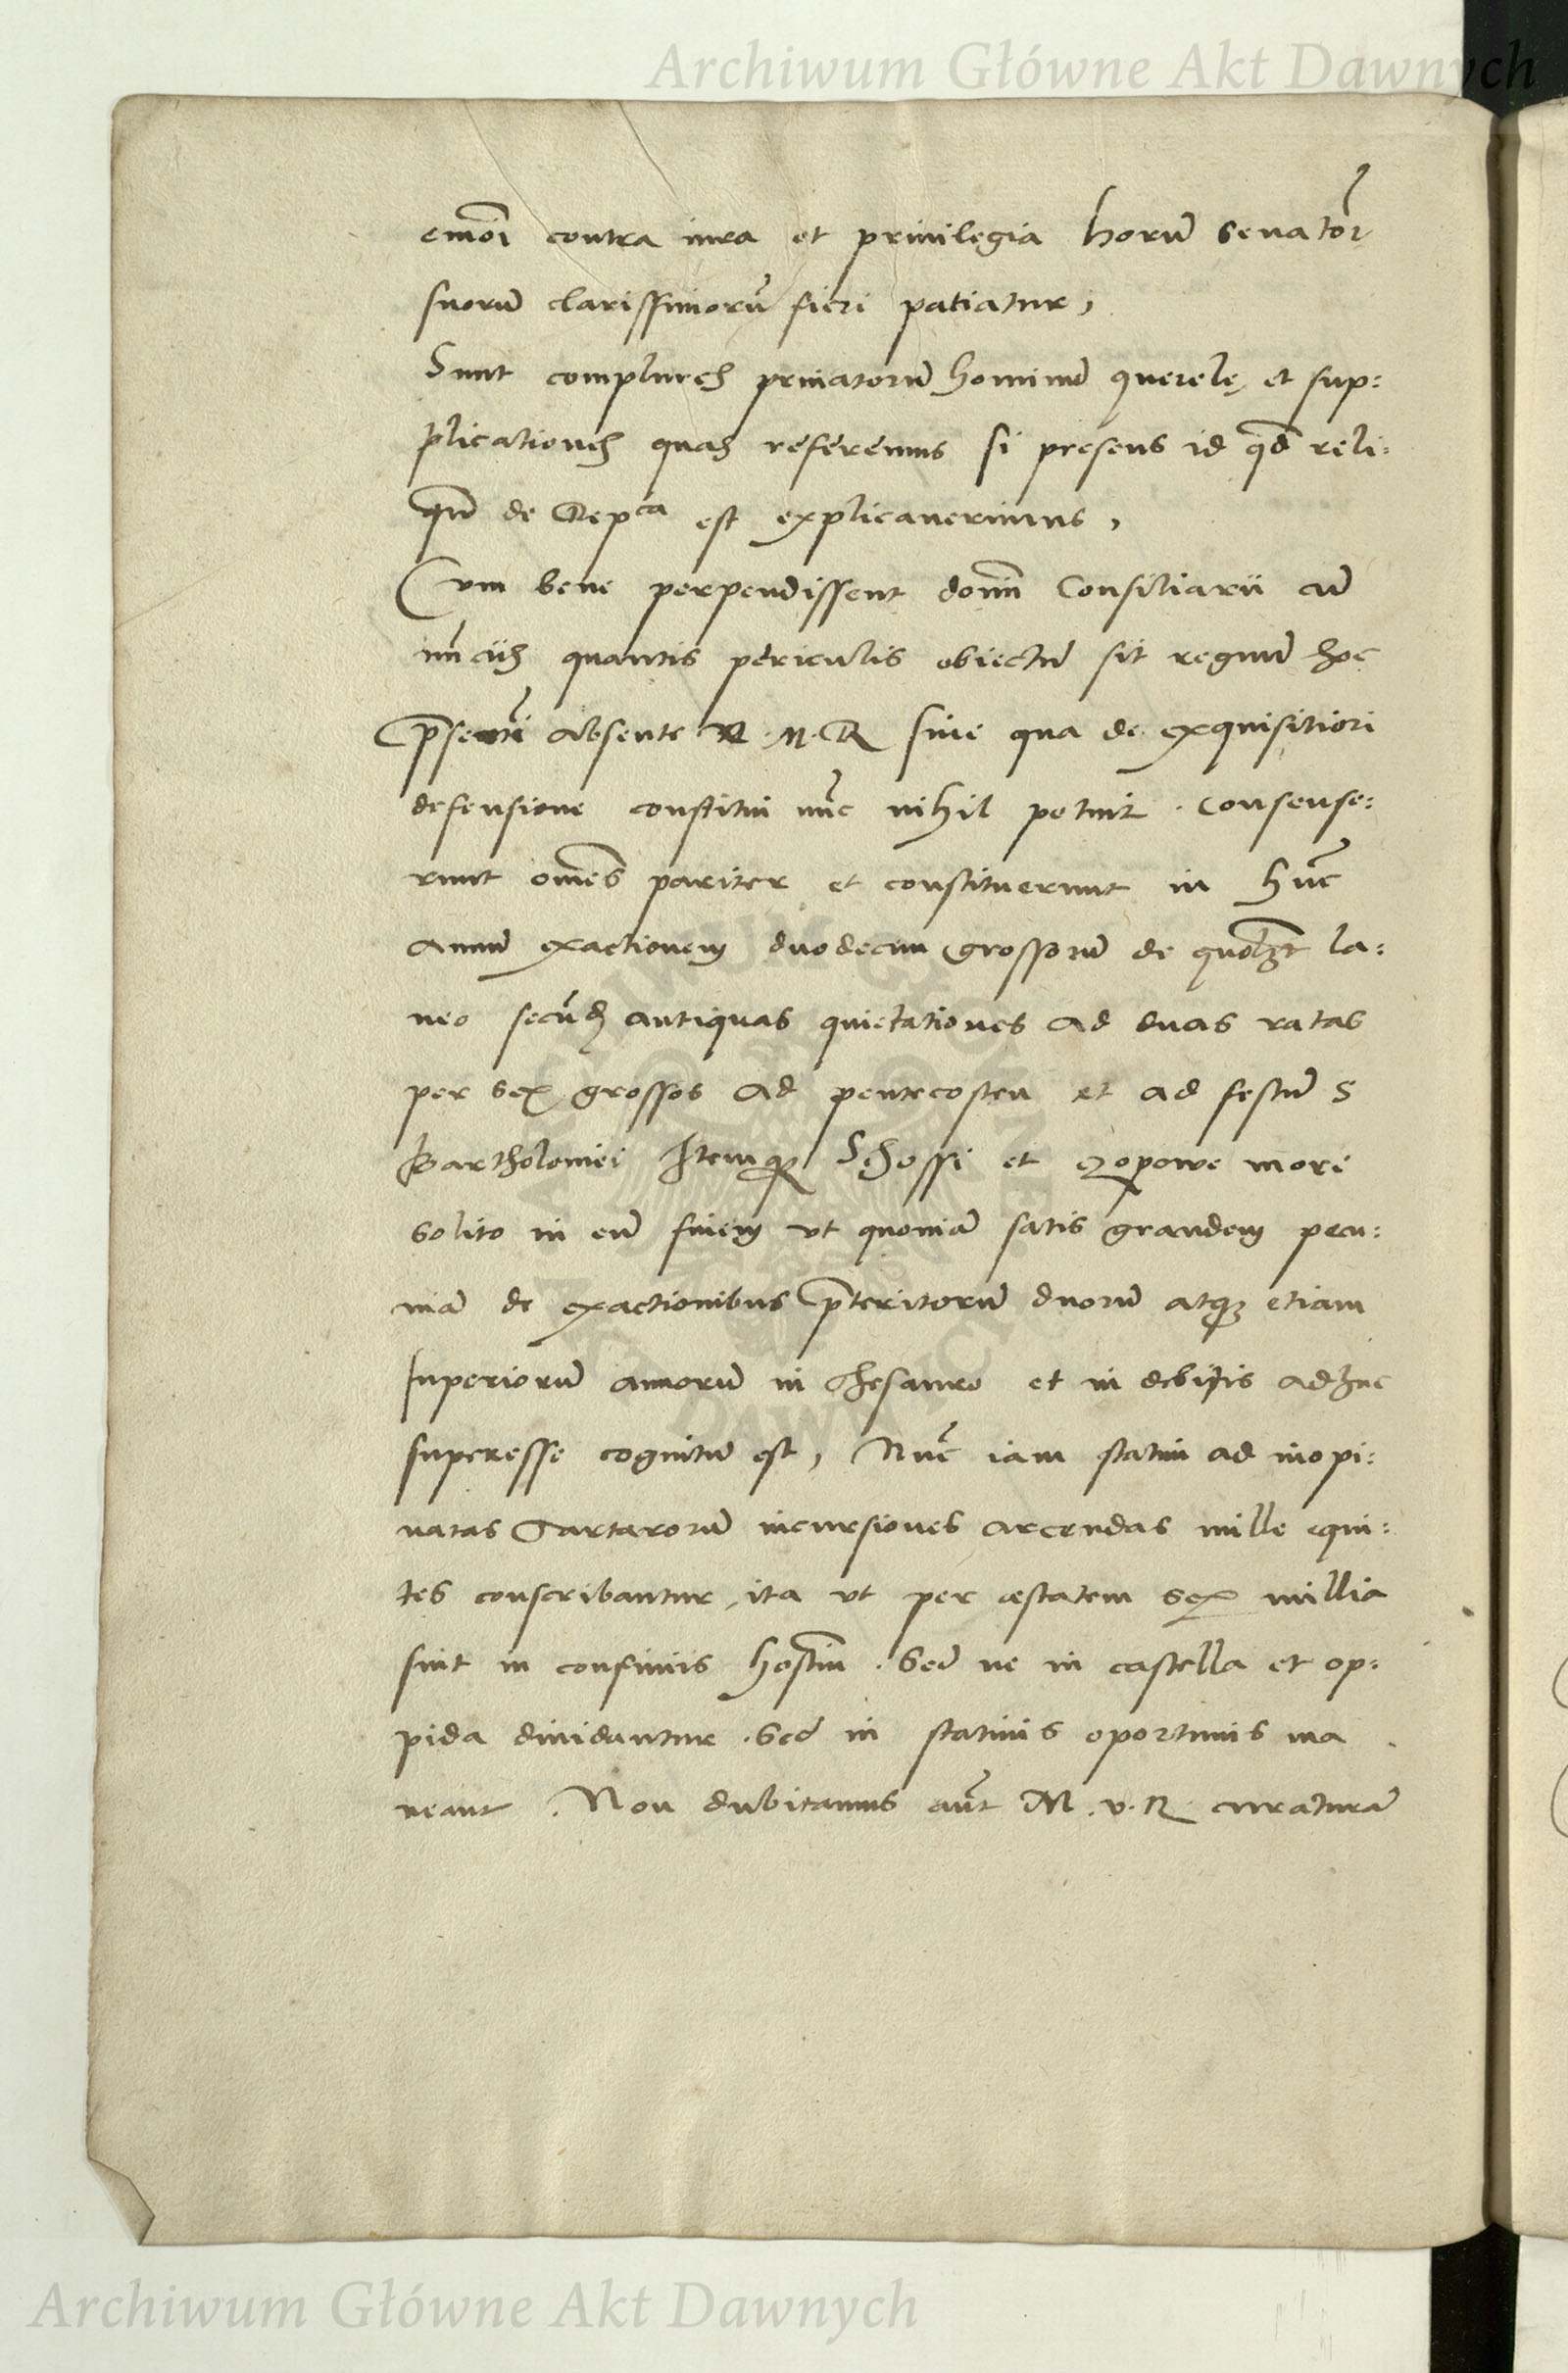 Archiwum Główne Akt Dawnych
contra iura et priuilegia horũ senator
suorũ clarissimorũ fieri patiatur,
Sunt complures priuatorũ hominũ querelę et sup:
plicationes quas referemus si presens id qd reli:
quũ de Repca est explicauerimus,
Cum bene perpendissent domĩ Consiliarii cũ
nũciis quantis periculis obiectũ sit regnũ hoc
absente M. R sine qua de exquisitiori
defensione constitui nũc nihil potuit. Consense:
runt omẽs pariter et constituerunt in hũc
annũ exactionem duodecim grossorũ de quolꝫt la:
neo secũdũ antiquas quietationes ad duas ratas
per sex grossos ad pentecosten et ad festũ S
Bartholomei Itemqꝫ Schossi et czopowe more
solito in eũ finem vt quoniã satis grandem pecu:
niã de exactionibus p̃teritorũ duorũ atqꝫ etiam
superiorũ annorũ in thesauro et in debitis adhuc
superesse cognitũ est, Nũc iam statim ad inopi:
natas Tartarorũ incursiones arcendas mille equi:
tes conscribantur, ita vt per æstatem sex millia
sint in confiniis hostiũ. Sed ne in castella et op:
pida diuidantur. Sed in statiuis oportunis ma
neant. Non dubitamus aũt M. v. R. curaturã
Archiwum Główne Akt Dawnych